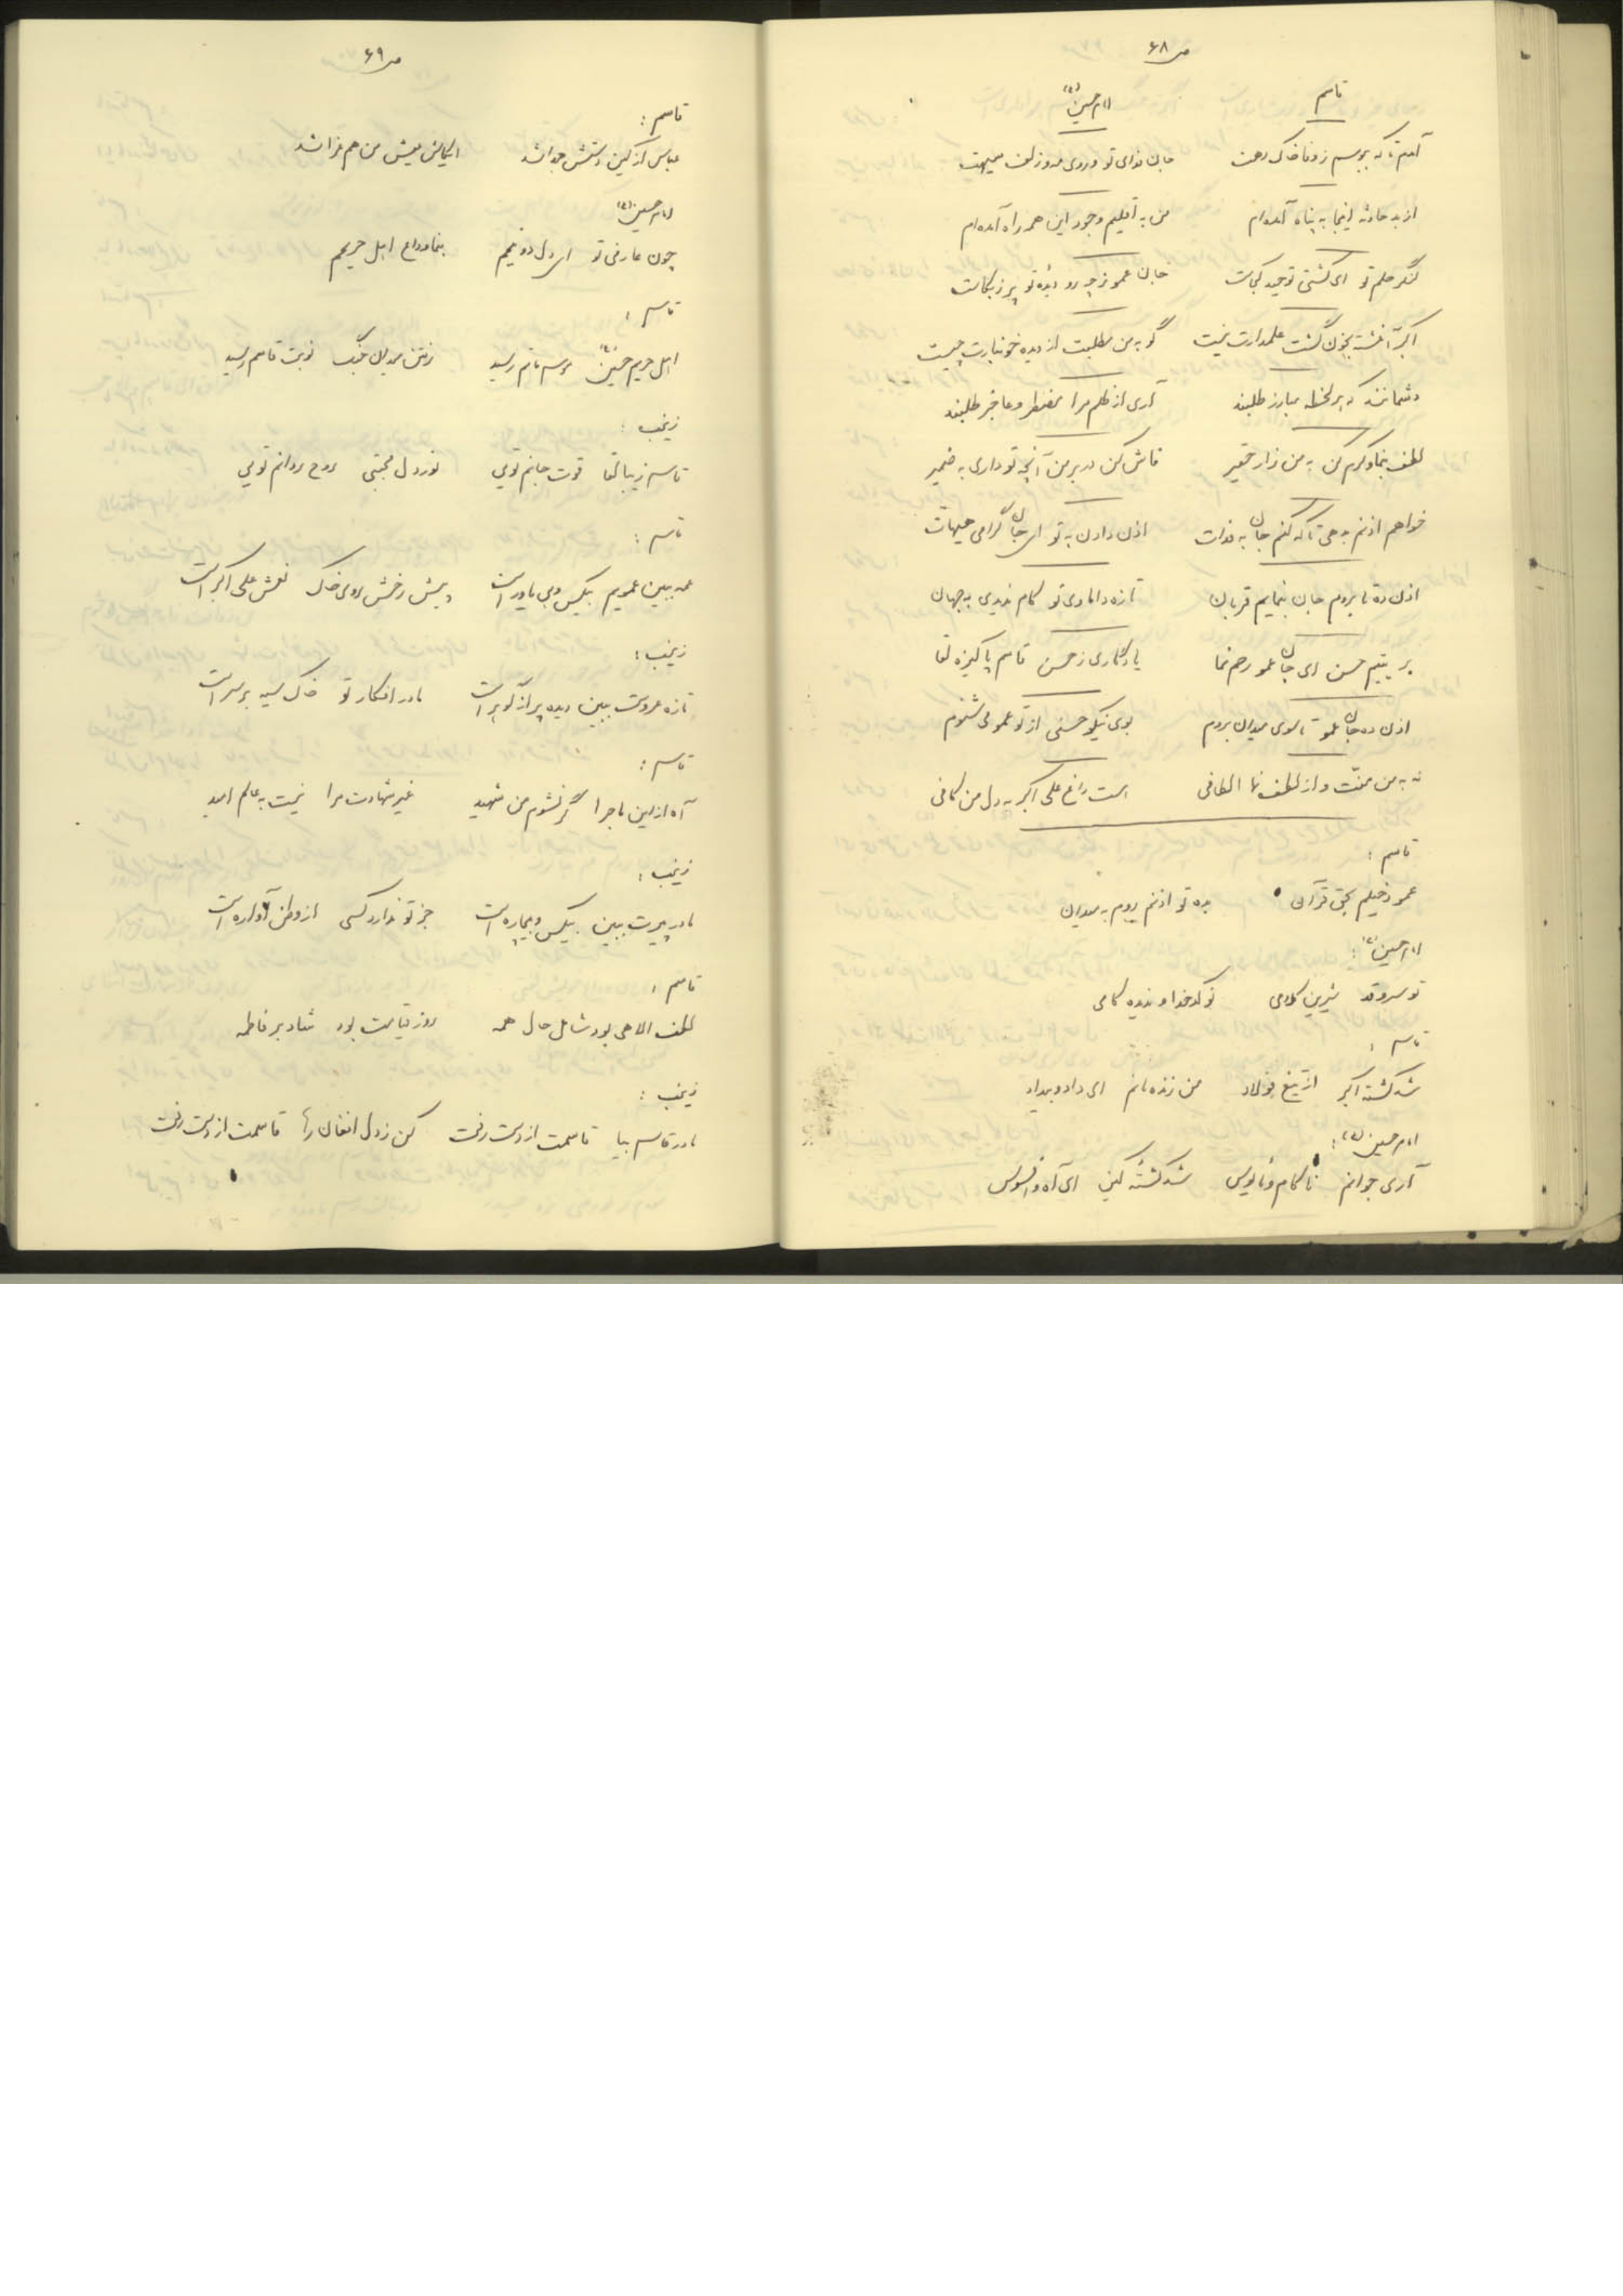 ص ۶۸
قاسم امام حسین (ع)
آمدم تا که ببوسم ز وفا خاک رهت جان فدای تو و روی مه و زلف سیهت
از بد حادثه اینجا به پناه آمده‌ام من به اقلیم وجود این همه راه آمده‌ام
لنگر حلم تو ای کشتی توحید کجاست جان عمو ز چه رو دیده تو پر ز بکاست
اکبر آغشته بخون گشت علمدارت نیست گو به من مطلبت از دیده خونبارت چیست
دشمانند که هر لحظه مبارز طلبند آری از ظلم مرا مضطر و عاجز طلبند
لطف بنما و کرم کن به من زار حقیر فاش کن در بر من آنچه تو داری به ضمیر
خواهم اذنم بدهی تا که کنم جان به فدات اذن دادن به تو ای جان گرامی هیهات
اذن ده تا بروم جان بنمایم قربان تازه دامادی تو کام ندیدی به جهان
بر یتیم حسن ای جان عمو رحم نما یادگاری ز حسن قاسم پاکیزه لقا
اذن ده جان عمو تا سوی میدان بروم بوی نیکو حسنی از تو عمو می شنوم
نه به من منّت و از لطف نما الطافی است داغ علی اکبر به دل من کافی
قاسم :
عمو دخیلم بحق قرآن بده تو اذنم روم به میدان
امام حسین (ع) :
تو سرو قد شیرین کلامی نو کدخدا و ندیده کامی
قاسم :
شد کشته اکبر از تیغ فولاد من زنده مانم ای داد و بیداد
امام حسین (ع) :
آری جوانم ناکام و مأیوس شد کشته کین ای آه و افسوس
ص ۶۹
قاسم :
عباس از کین دستش جدا شد عیش من هم عزا شد
امام حسین (ع)
چون عارفی تو ای دل دو نیمم بنما وداع اهل حریمم
قاسم :
اهل حریم حسین (ع) موسم ماتم رسید رفتن میدان جنگ نوبت قاسم رسید
زینب :
قاسم زیبا لقا قوت جانم تویی نور دل مجتبی روح روانم تویی
قاسم :
عمه ببین عمویم بیکس و بی یاور است پیش رخش روی خاک نعش علی اکبر است
زینب :
تازه عروست ببین دیده پر از گوهر است مادر افکار تو خاک سیه بر سر است
قاسم :
آه از این ماجرا گر نشوم من شهید غیر شهادت مرا نیست به عالم امید
زینب :
مادر پیرت ببین بیکس و بیچاره است جز تو ندارد کسی از وطن آواره است
قاسم :
لطف الاهی بود شامل حال همه روز قیامت بود شاد بر فاطمه
زینب :
مادر قاسم بیا قاسمت از دست رفت کن ز دل افغان رها قاسمت از دست رفت